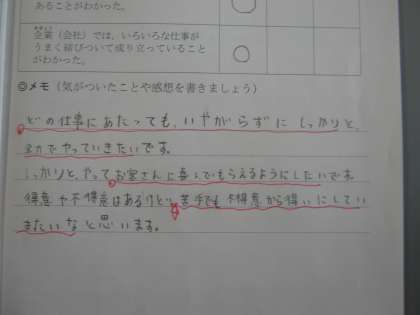 あることがわかった。
企業（会社）では、いろいろな仕事が
うまく結びついて成り立っていること
がわかった。
◎メモ（気がついたことや感想を書きましょう）
どの仕事にあたっても、いやがらずに しっかりと、
全力でやっていきたいです。
しっかりと、やってお客さんに喜んでもらえるようにしたいです。
得意や不得意はあるけど、苦手でも不得意から得いにしてい
きたいなと思います。